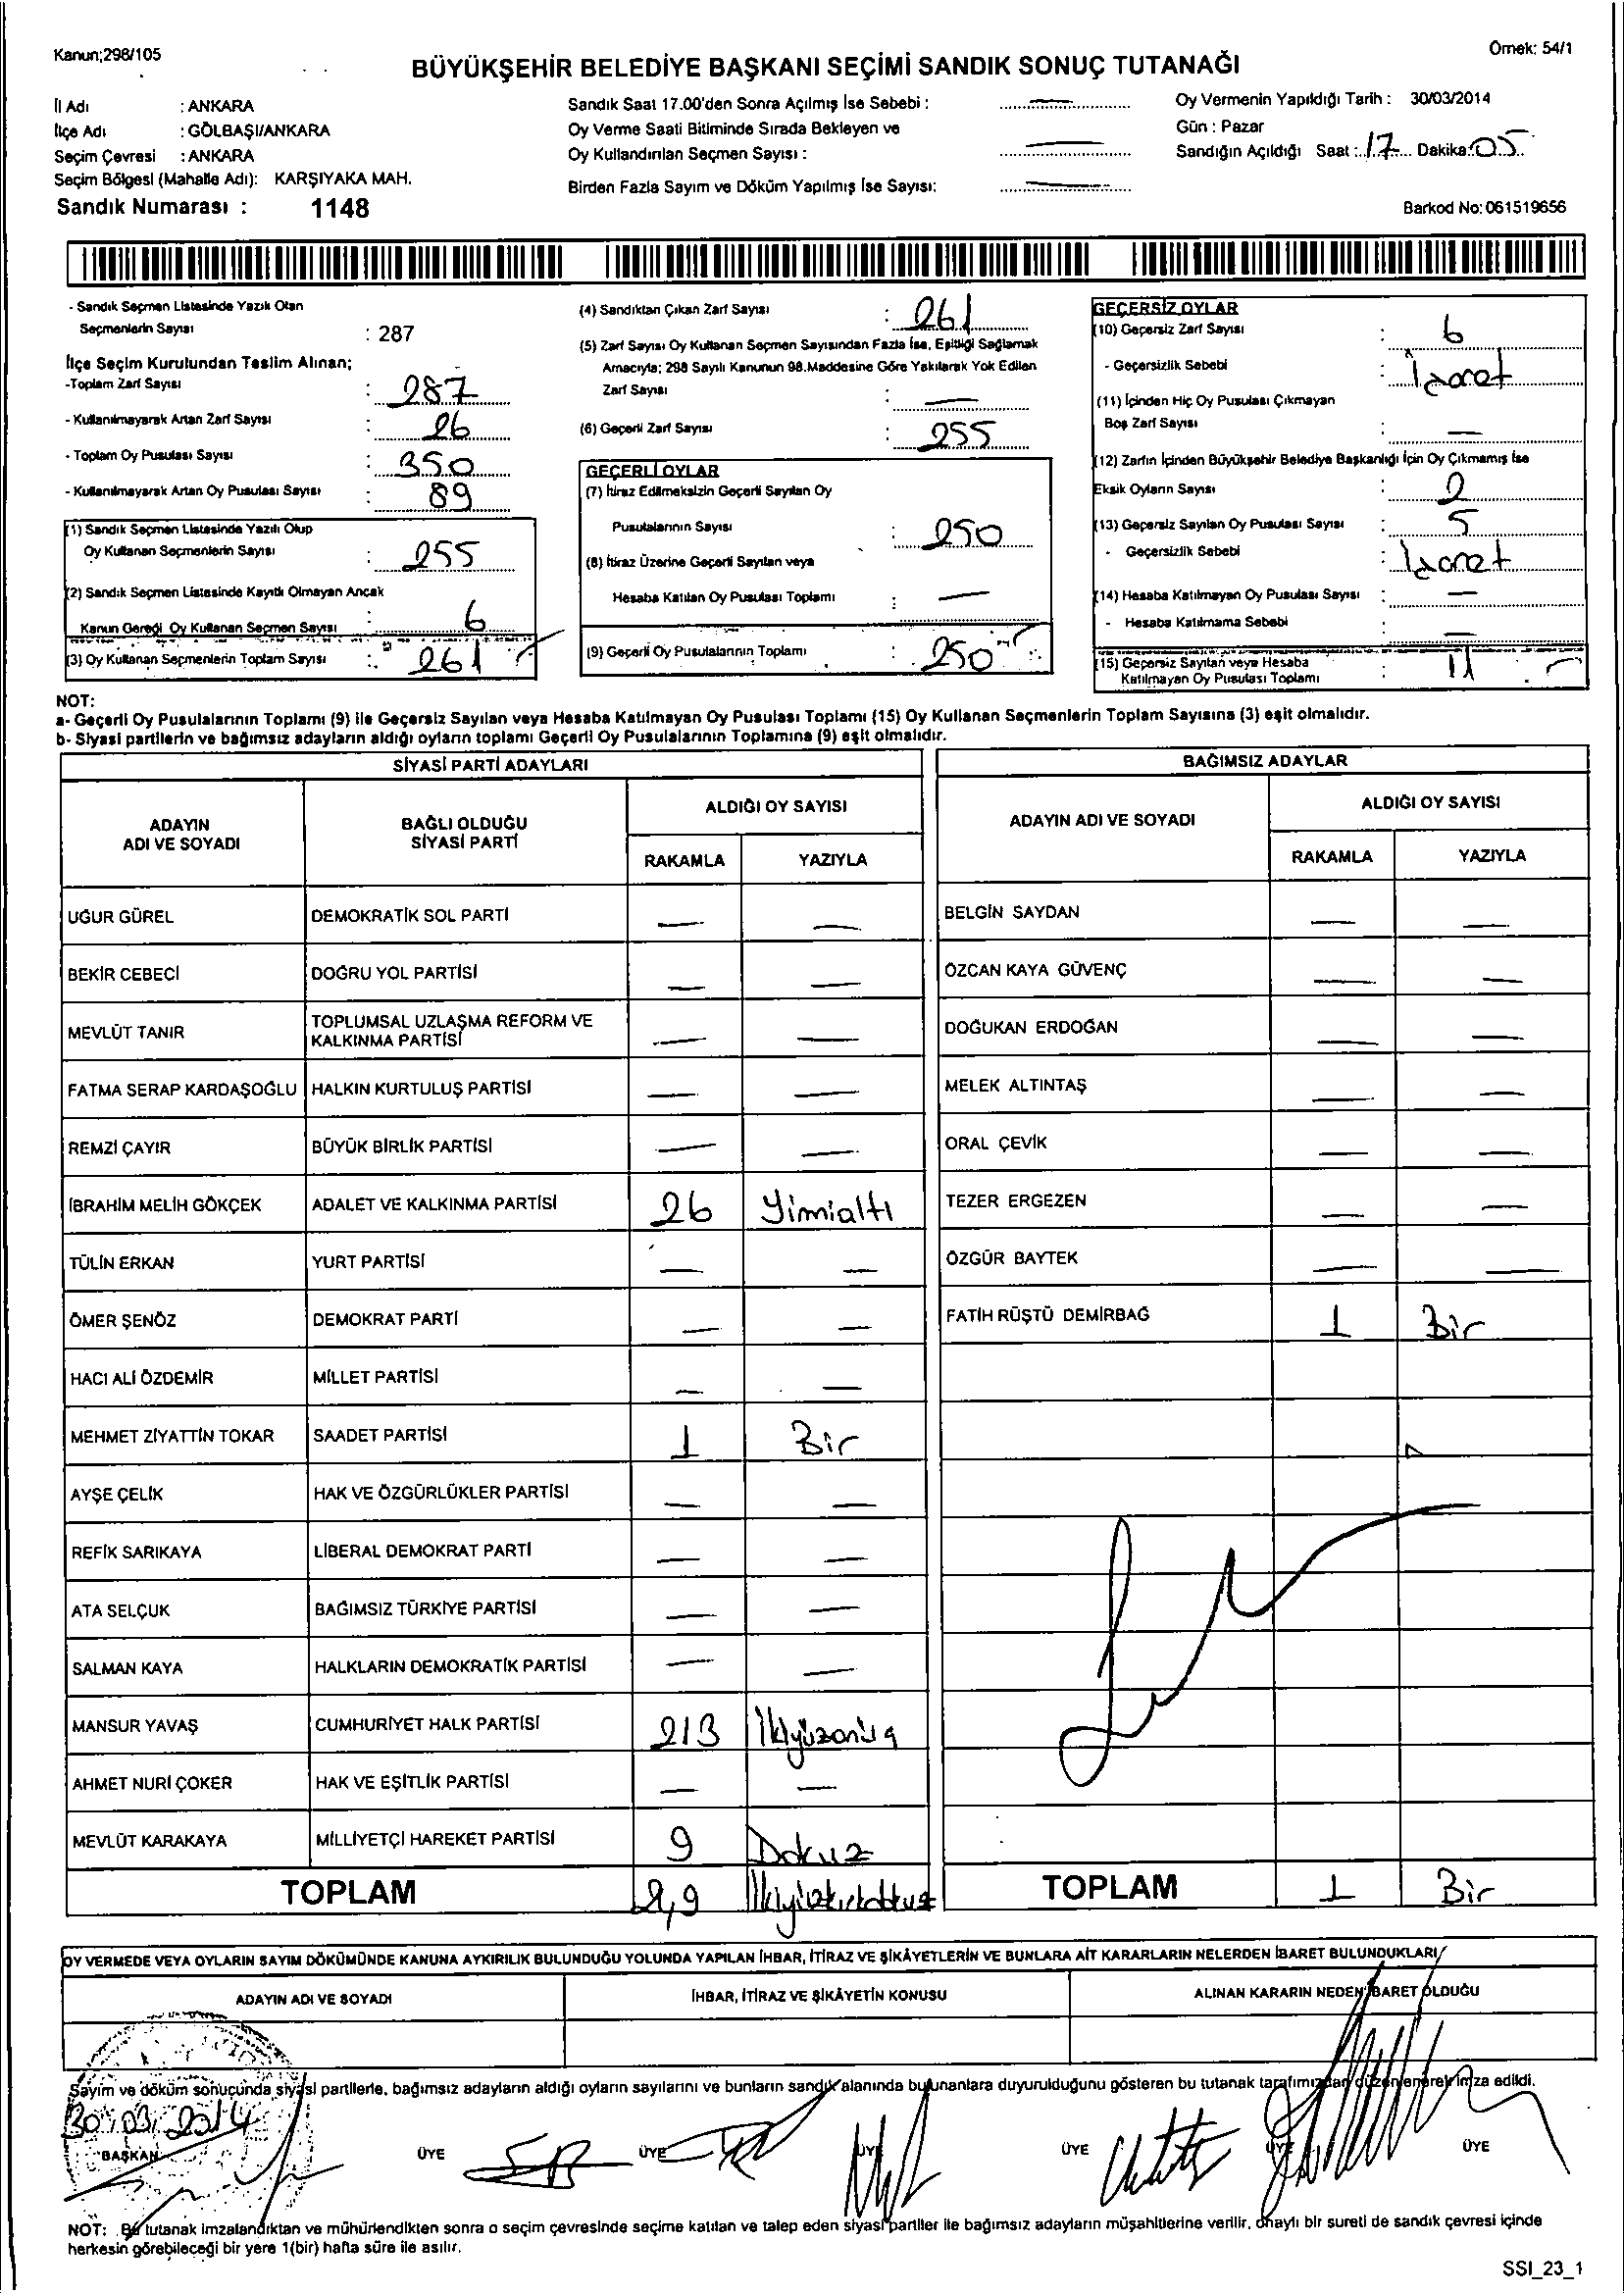 Kanun;298/105
Örnek: 54/1
BÜYÜKŞEHİR BELEDİYE BAŞKANI SEÇİMİ SANDIK SONUÇ TUTANAĞI
İl Adı : ANKARA
İlçe Adı : GÖLBAŞI/ANKARA
Seçim Çevresi : ANKARA
Seçim Bölgesi (Mahalle Adı): KARŞIYAKA MAH.
Sandık Numarası : 1148
Sandık Saat 17.00'den Sonra Açılmış İse Sebebi : —
Oy Verme Saati Bitiminde Sırada Bekleyen ve
Oy Kullandırılan Seçmen Sayısı : —
Birden Fazla Sayım ve Döküm Yapılmış İse Sayısı: —
Oy Vermenin Yapıldığı Tarih : 30/03/2014
Gün : Pazar
Sandığın Açıldığı Saat : 17 Dakika: 05
Barkod No: 061519656
- Sandık Seçmen Listesinde Yazılı Olan
Seçmenlerin Sayısı : 287
İlçe Seçim Kurulundan Teslim Alınan;
-Toplam Zarf Sayısı : 287
- Kullanılmayarak Artan Zarf Sayısı : 26
- Toplam Oy Pusulası Sayısı : 350
- Kullanılmayarak Artan Oy Pusulası Sayısı : 89
(1) Sandık Seçmen Listesinde Yazılı Olup
Oy Kullanan Seçmenlerin Sayısı : 255
(2) Sandık Seçmen Listesinde Kayıtlı Olmayan Ancak
Kanun Gereği Oy Kullanan Seçmen Sayısı : 6
(3) Oy Kullanan Seçmenlerin Toplam Sayısı : 261
(4) Sandıktan Çıkan Zarf Sayısı : 261
(5) Zarf Sayısı Oy Kullanan Seçmen Sayısından Fazla İse, Eşitliği Sağlamak
Amacıyla; 298 Sayılı Kanunun 98.Maddesine Göre Yakılarak Yok Edilen
Zarf Sayısı : —
(6) Geçerli Zarf Sayısı : 255
GEÇERLİ OYLAR
(7) İtiraz Edilmeksizin Geçerli Sayılan Oy
Pusulalarının Sayısı : 250
(8) İtiraz Üzerine Geçerli Sayılan veya
Hesaba Katılan Oy Pusulası Toplamı : —
(9) Geçerli Oy Pusulalarının Toplamı : 250
GEÇERSİZ OYLAR
(10) Geçersiz Zarf Sayısı : 6
- Geçersizlik Sebebi : İşaret
(11) İçinden Hiç Oy Pusulası Çıkmayan
Boş Zarf Sayısı : —
(12) Zarfın İçinden Büyükşehir Belediye Başkanlığı İçin Oy Çıkmamış İse
Eksik Oyların Sayısı : 2
(13) Geçersiz Sayılan Oy Pusulası Sayısı : 5
- Geçersizlik Sebebi : İşaret
(14) Hesaba Katılmayan Oy Pusulası Sayısı : —
- Hesaba Katılmama Sebebi : —
(15) Geçersiz Sayılan veya Hesaba
Katılmayan Oy Pusulası Toplamı : 11
NOT:
a- Geçerli Oy Pusulalarının Toplamı (9) ile Geçersiz Sayılan veya Hesaba Katılmayan Oy Pusulası Toplamı (15) Oy Kullanan Seçmenlerin Toplam Sayısına (3) eşit olmalıdır.
b- Siyasi partilerin ve bağımsız adayların aldığı oyların toplamı Geçerli Oy Pusulalarının Toplamına (9) eşit olmalıdır.
SİYASİ PARTİ ADAYLARI
ADAYIN
ADI VE SOYADI
BAĞLI OLDUĞU
SİYASİ PARTİ
ALDIĞI OY SAYISI
RAKAMLA YAZIYLA
UĞUR GÜREL DEMOKRATİK SOL PARTİ — —
BEKİR CEBECİ DOĞRU YOL PARTİSİ — —
MEVLÜT TANIR TOPLUMSAL UZLAŞMA REFORM VE
KALKINMA PARTİSİ — —
FATMA SERAP KARDAŞOĞLU HALKIN KURTULUŞ PARTİSİ — —
REMZİ ÇAYIR BÜYÜK BİRLİK PARTİSİ — —
İBRAHİM MELİH GÖKÇEK ADALET VE KALKINMA PARTİSİ 26 Yimialtı
TÜLİN ERKAN YURT PARTİSİ — —
ÖMER ŞENÖZ DEMOKRAT PARTİ — —
HACI ALİ ÖZDEMİR MİLLET PARTİSİ — —
MEHMET ZİYATTİN TOKAR SAADET PARTİSİ 1 Bir
AYŞE ÇELİK HAK VE ÖZGÜRLÜKLER PARTİSİ — —
REFİK SARIKAYA LİBERAL DEMOKRAT PARTİ — —
ATA SELÇUK BAĞIMSIZ TÜRKİYE PARTİSİ — —
SALMAN KAYA HALKLARIN DEMOKRATİK PARTİSİ — —
MANSUR YAVAŞ CUMHURİYET HALK PARTİSİ 213
AHMET NURİ ÇOKER HAK VE EŞİTLİK PARTİSİ — —
MEVLÜT KARAKAYA MİLLİYETÇİ HAREKET PARTİSİ 9 Dokuz
TOPLAM
BAĞIMSIZ ADAYLAR
ADAYIN ADI VE SOYADI
ALDIĞI OY SAYISI
RAKAMLA YAZIYLA
BELGİN SAYDAN — —
ÖZCAN KAYA GÜVENÇ — —
DOĞUKAN ERDOĞAN — —
MELEK ALTINTAŞ — —
ORAL ÇEVİK — —
TEZER ERGEZEN — —
ÖZGÜR BAYTEK — —
FATİH RÜŞTÜ DEMİRBAĞ 1 Bir
TOPLAM 1 Bir
OY VERMEDE VEYA OYLARIN SAYIM DÖKÜMÜNDE KANUNA AYKIRILIK BULUNDUĞU YOLUNDA YAPILAN İHBAR, İTİRAZ VE ŞİKÂYETLERİN VE BUNLARA AİT KARARLARIN NELERDEN İBARET BULUNDUKLARI
ADAYIN ADI VE SOYADI
İHBAR, İTİRAZ VE ŞİKÂYETİN KONUSU
ALINAN KARARIN NEDEN İBARET OLDUĞU
Sayım ve döküm sonucunda siyasi partilerle, bağımsız adayların aldığı oyların sayılarını ve bunların sandık alanında bulunanlara duyurulduğunu gösteren bu tutanak tarafımızdan düzenlenerek imza edildi.
30.03.2014
BAŞKAN ÜYE ÜYE ÜYE ÜYE ÜYE ÜYE
NOT: Bu tutanak imzalandıktan ve mühürlendikten sonra o seçim çevresinde seçime katılan ve talep eden siyasi partiler ile bağımsız adayların müşahitlerine verilir, onaylı bir sureti de sandık çevresi içinde
herkesin görebileceği bir yere 1(bir) hafta süre ile asılır.
SSI_23_1